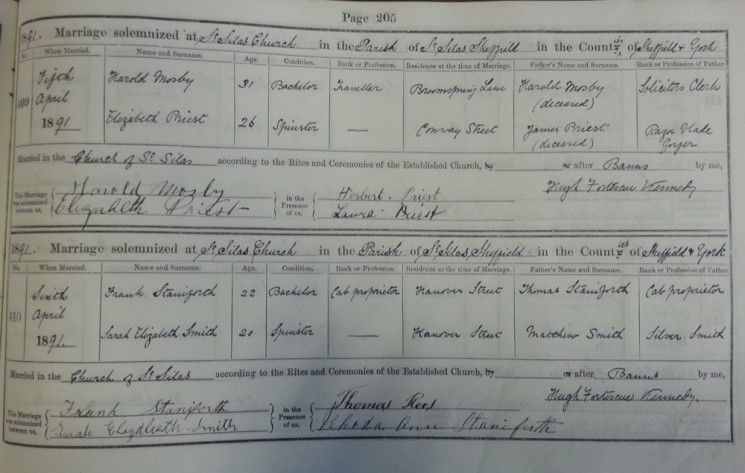 Page 205
1891. Marriage solemnized at St Silas Church in the Parish of St Silas Sheffield in the Counties of Sheffield & York
No. When Married. Name and Surname. Age. Condition. Rank or Profession. Residence at the time of Marriage. Father's Name and Surname. Rank or Profession of Father
409 Fifth April 1891 Harold Mosby 31 Bachelor Traveller Broomspring Lane Harold Mosby (deceased) Solicitors Clerk
Elizabeth Priest 26 Spinster — Conway Street James Priest (deceased) Razor Blade Forger
Married in the Church of St Silas according to the Rites and Ceremonies of the Established Church, by or after Banns by me,
Harold Mosby Herbert Priest Hugh Fortescue
This Marriage was solemnized between us, in the Presence of us,
Elizabeth Priest Laura Priest
1891. Marriage solemnized at St Silas Church in the Parish of St Silas, Sheffield in the Counties of Sheffield & York
No. When Married. Name and Surname. Age. Condition. Rank or Profession. Residence at the time of Marriage. Father's Name and Surname. Rank or Profession of Father
410 Sixth April 1891. Frank Staniforth 22 Bachelor Cab proprietor Hanover Street Thomas Staniforth Cab proprietor
Sarah Elizabeth Smith 20 Spinster — Hanover Street Matthew Smith Silver Smith
Married in the Church of St Silas according to the Rites and Ceremonies of the Established Church, by or after Banns by me,
Frank Staniforth Thomas Hugh Fortescue
This Marriage was solemnized between us, in the Presence of us,
Sarah Elizabeth Smith Rhoda Ann Staniforth